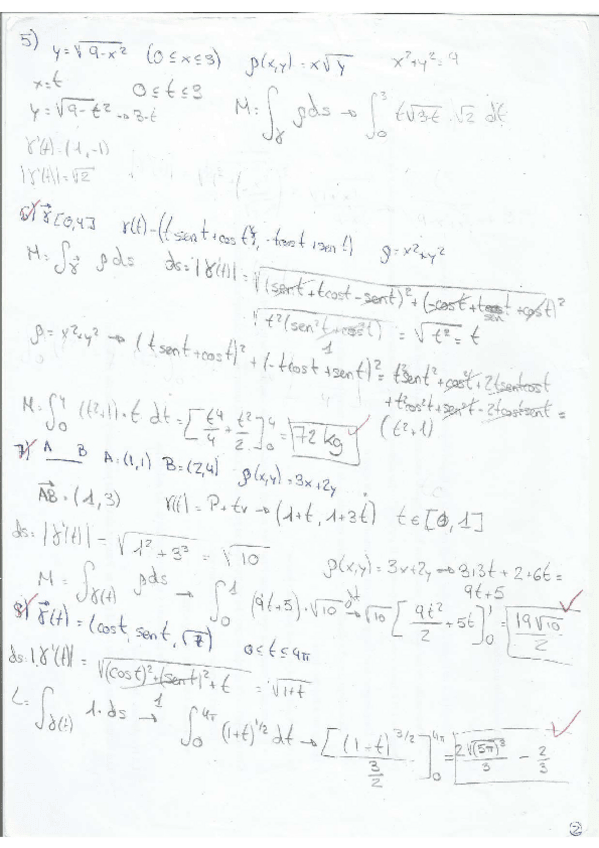 5) y=√9-x² (0≤x≤3) ρ(x,y)=x√y x²+y²=9
x=t 0≤t≤3
y=√9-t² → 3-t M=∫γ ρds → ∫₀³ t√3-t · √2 dt
γ'(t)=(1,-1)
|γ'(t)|=√2
γ⃗ [0,4] γ(t)=(t sent+cost, -tcost+sent) ρ=x²+y²
M=∫γ⃗ ρds ds=|γ'(t)|=√(sent+tcost-sent)²+(-cost+tsent+cost)²
√t²(sen²t+cos²t) = √t² = t
1
ρ=x²+y² → (tsent+cost)²+(-tcost+sent)²= t²sent²+cost²+2tsentcost
+t²cos²t+sen²t-2tcostsent=
(t²+1)
M=∫₀⁴ (t²+1)·t dt=[t⁴/4+t²/2]₀⁴=72 kg
7) A B A=(1,1) B=(2,4) ρ(x,y)=3x+2y
AB=(1,3) r(t)=P+tv→(1+t, 1+3t) t∈[0,1]
ds=|γ'(t)|=√1²+3³=√10 ρ(x,y)=3x+2y→3+3t+2+6t=
9t+5
M=∫γ(t) ρds → ∫₀¹ (9t+5)·√10 dt→√10[9t²/2+5t]₀¹=19√10/2
8) γ⃗(t)=(cost, sent, √7) 0≤t≤4π
ds=|γ'(t)|=√(cost)²+(sent)²+t =√1+t
1
L=∫γ(t) 1·ds → ∫₀^4π (1+t)^1/2 dt→[(1-t)^3/2 / 3/2]₀^4π=2√(5π)³/3 - 2/3
2